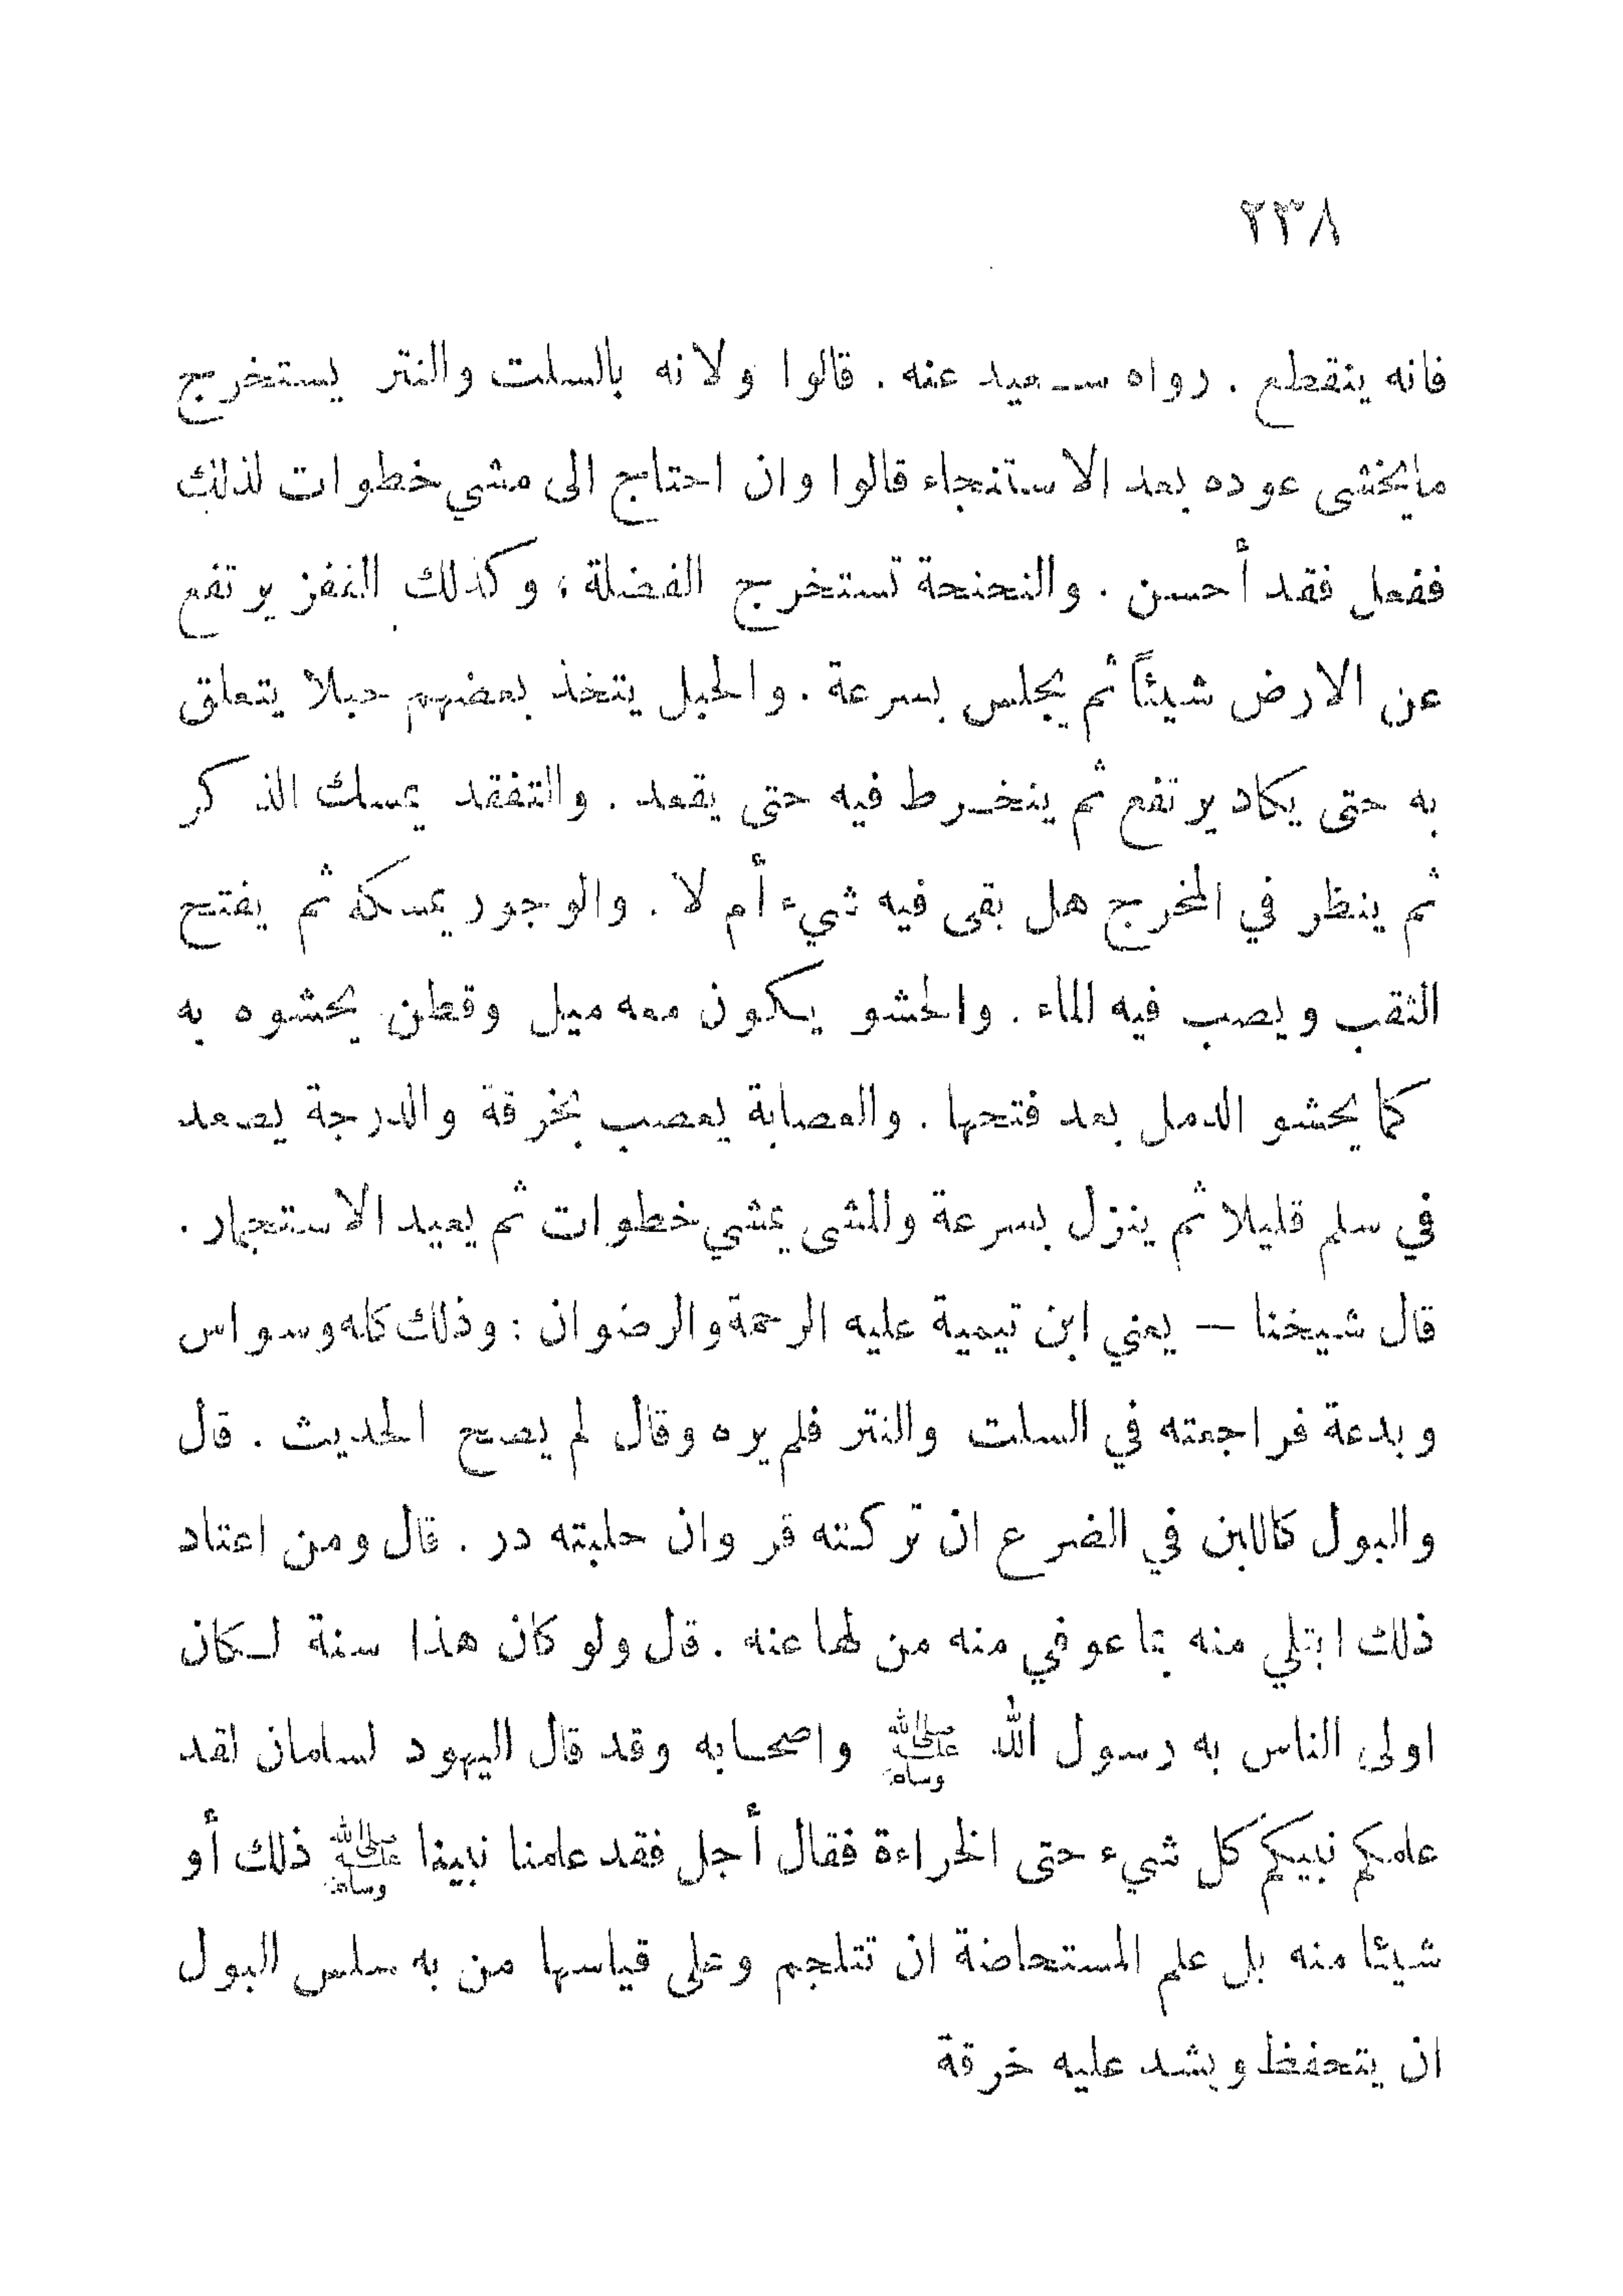 ٢٣٨
فانه ينقطع . رواه سعيد عنه . قالوا ولانه بالسلت والنتر يستخرج
مايخشى عوده بعد الاستنجاء قالوا وان احتاج الى مشي خطوات لذلك
ففعل فقد أحسن . والنحنحة تستخرج الفضلة ، وكذلك القفز يرتفع
عن الارض شيئاً ثم يجلس بسرعة . والحبل يتخذ بعضهم حبلا يتعلق
به حتى يكاد يرتفع ثم ينخرط فيه حتى يقعد . والتفقد يمسك الذكر
ثم ينظر في المخرج هل بقى فيه شيء أم لا . والوجور يمسكه ثم يفتح
الثقب ويصب فيه الماء . والحشو يكون معه ميل وقطن يحشوه به
كما يحشو الدمل بعد فتحها . والعصابة يعصب بخرقة والدرجة يصعد
في سلم قليلا ثم ينزل بسرعة والمشى يمشي خطوات ثم يعيد الاستجمار .
قال شيخنا — يعني ابن تيمية عليه الرحمة والرضوان : وذلك كله وسواس
وبدعة فراجعته في السلت والنتر فلم يره وقال لم يصح الحديث . قال
والبول كاللبن في الضرع ان تركته قر وان حلبته در . قال ومن اعتاد
ذلك ابتلي منه بما عوفي منه من لها عنه . قال ولو كان هذا سنة لكان
اولى الناس به رسول الله ﷺ واصحابه وقد قال اليهود لسلمان لقد
علمكم نبيكم كل شيء حتى الخراءة فقال أجل فقد علمنا نبينا ﷺ ذلك أو
شيئا منه بل علم المستحاضة ان تتلجم وعلى قياسها من به سلس البول
ان يتحفظ ويشد عليه خرقة